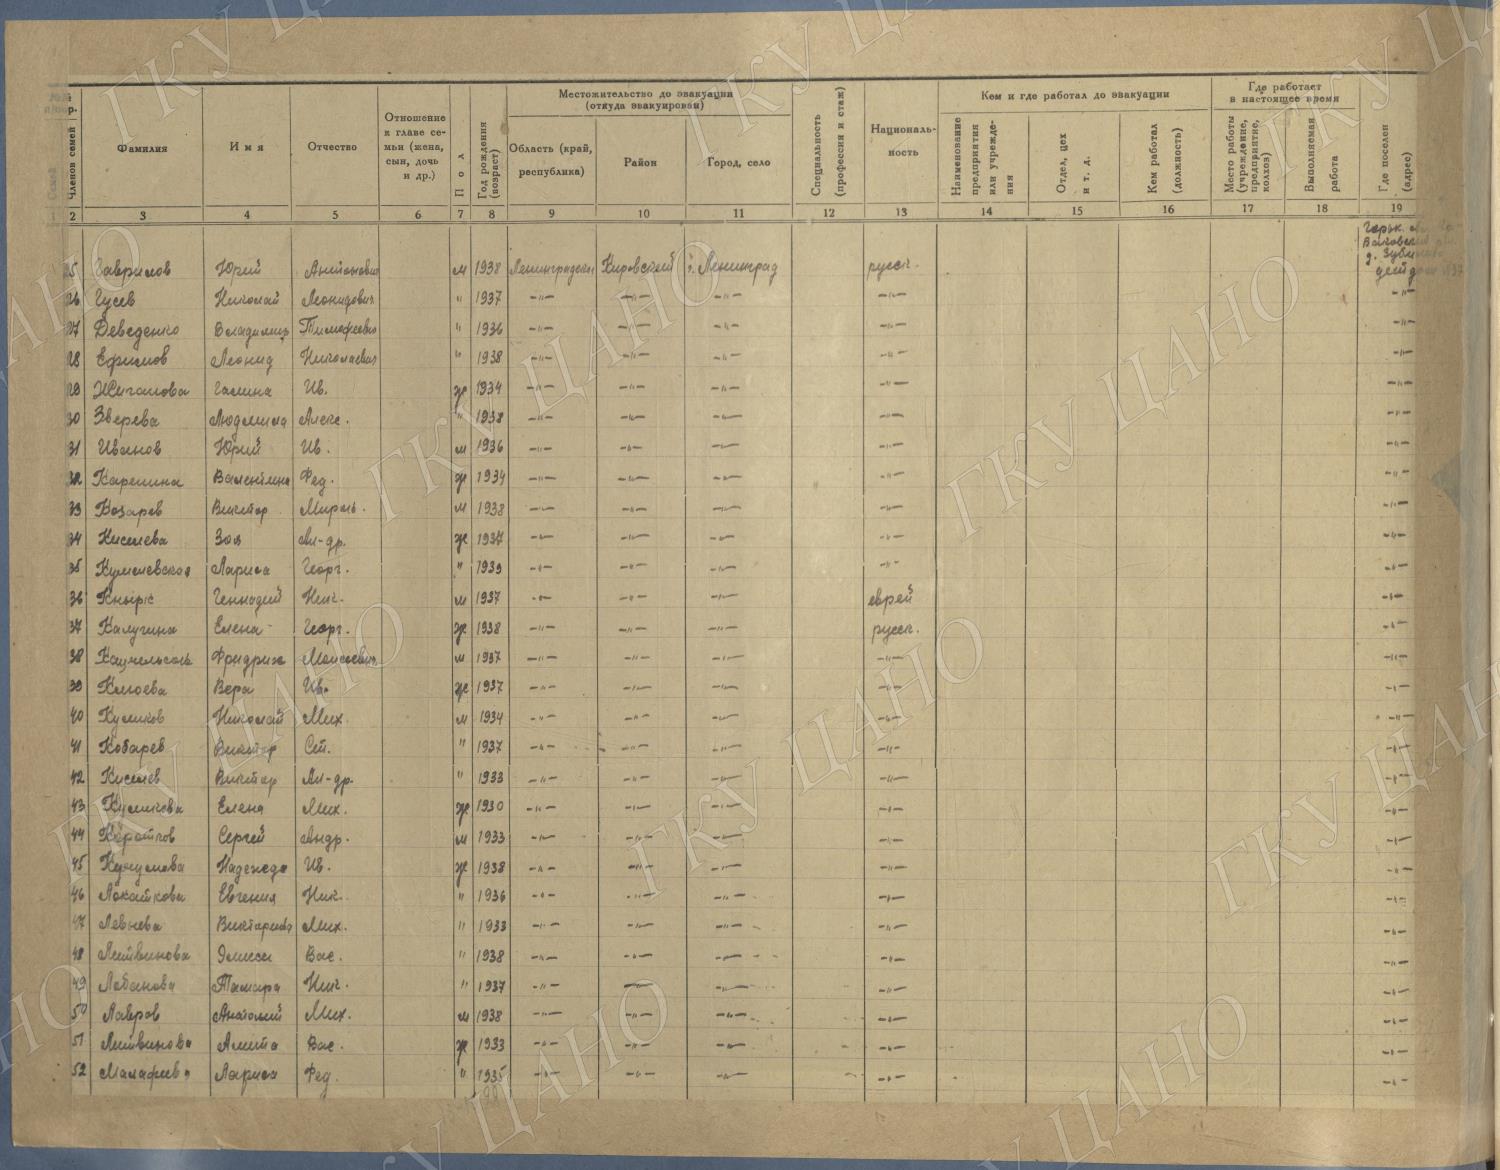 Членов семей
Фамилия
Имя
Отчество
Отношение к главе се-
мьи (жена,
сын, дочь
и др.)
Пол
Год рождения (возраст)
Местожительство до эвакуации
(откуда эвакуирован)
Область (край,
республика)
Район
Город, село
Специальность
(профессия и стаж)
Националь-
ность
Кем и где работал до эвакуации
Наименование
предприятия
или учрежде-
ния
Отдел, цех
и т. д.
Кем работал
(должность)
Где работает
в настоящее время
Место работы
(учреждение,
предприятие,
колхоз)
Выполняемая
работа
Где поселен
(адрес)
1 2 3 4 5 6 7 8 9 10 11 12 13 14 15 16 17 18 19
25 Гаврилов Юрий Антонович м 1938 Ленинградская Кировский г. Ленинград русск.
26 Гусев Николай Леонидович " 1937 -"- -"- -"- -"- -"-
27 Деведенко Владимир Тимофеевич " 1936 -"- -"- -"- -"- -"-
28 Ефимов Леонид Николаевич " 1938 -"- -"- -"- -"- -"-
29 Жиганова Галина Ив. ж 1934 -"- -"- -"- -"- -"-
30 Зверева Людмила Алекс. " 1938 -"- -"- -"- -"- -"-
31 Иванов Юрий Ив. м 1936 -"- -"- -"- -"- -"-
32 Каренина Валентина Фед. ж 1934 -"- -"- -"- -"- -"-
33 Козарев Виктор м 1938 -"- -"- -"- -"- -"-
34 Киселева Зоя Ал-др. ж 1937 -"- -"- -"- -"- -"-
35 Лариса Георг. " 1939 -"- -"- -"- -"- -"-
36 Кнырк Геннадий Ник. м 1937 -"- -"- -"- еврей -"-
37 Калугина Елена Георг. ж 1938 -"- -"- -"- русск. -"-
38 Кацнельсон Фридрих Моисеевич м 1937 -"- -"- -"- -"- -"-
39 Клюева Вера Ив. ж 1937 -"- -"- -"- -"- -"-
40 Куликов Николай Мих. м 1934 -"- -"- -"- -"- -"-
41 Кобарев Виктор Ст. " 1937 -"- -"- -"- -"- -"-
42 Киселев Виктор Ал-др. " 1933 -"- -"- -"- -"- -"-
43 Куликова Елена Мих. ж 1930 -"- -"- -"- -"- -"-
44 Коротков Сергей Андр. м 1933 -"- -"- -"- -"- -"-
45 Надежда Ив. ж 1938 -"- -"- -"- -"- -"-
46 Локаткова Евгения Ник. " 1936 -"- -"- -"- -"- -"-
47 Левнева Виктория Мих. " 1933 -"- -"- -"- -"- -"-
48 Литвинова Элисса Вас. " 1938 -"- -"- -"- -"- -"-
49 Лобанова Тамара Ник. " 1937 -"- -"- -"- -"- -"-
50 Лавров Анатолий Мих. м 1938 -"- -"- -"- -"- -"-
51 Литвинова Алита Вас. ж 1933 -"- -"- -"- -"- -"-
52 Малафеева Лариса Фед. " 1935 -"- -"- -"- -"- -"-
ГКУ ЦАНО